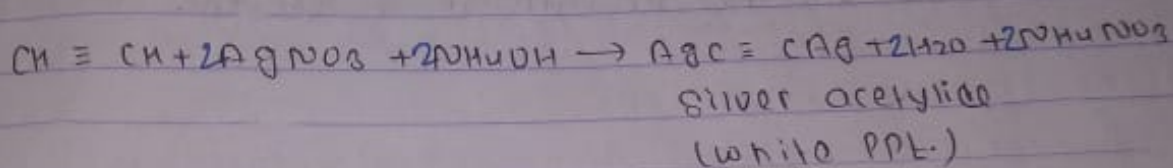 CH ≡ CH + 2AgNO3 + 2NH4OH → AgC ≡ CAg + 2H2O + 2NH4NO3
Silver acetylide
(white PPt.)